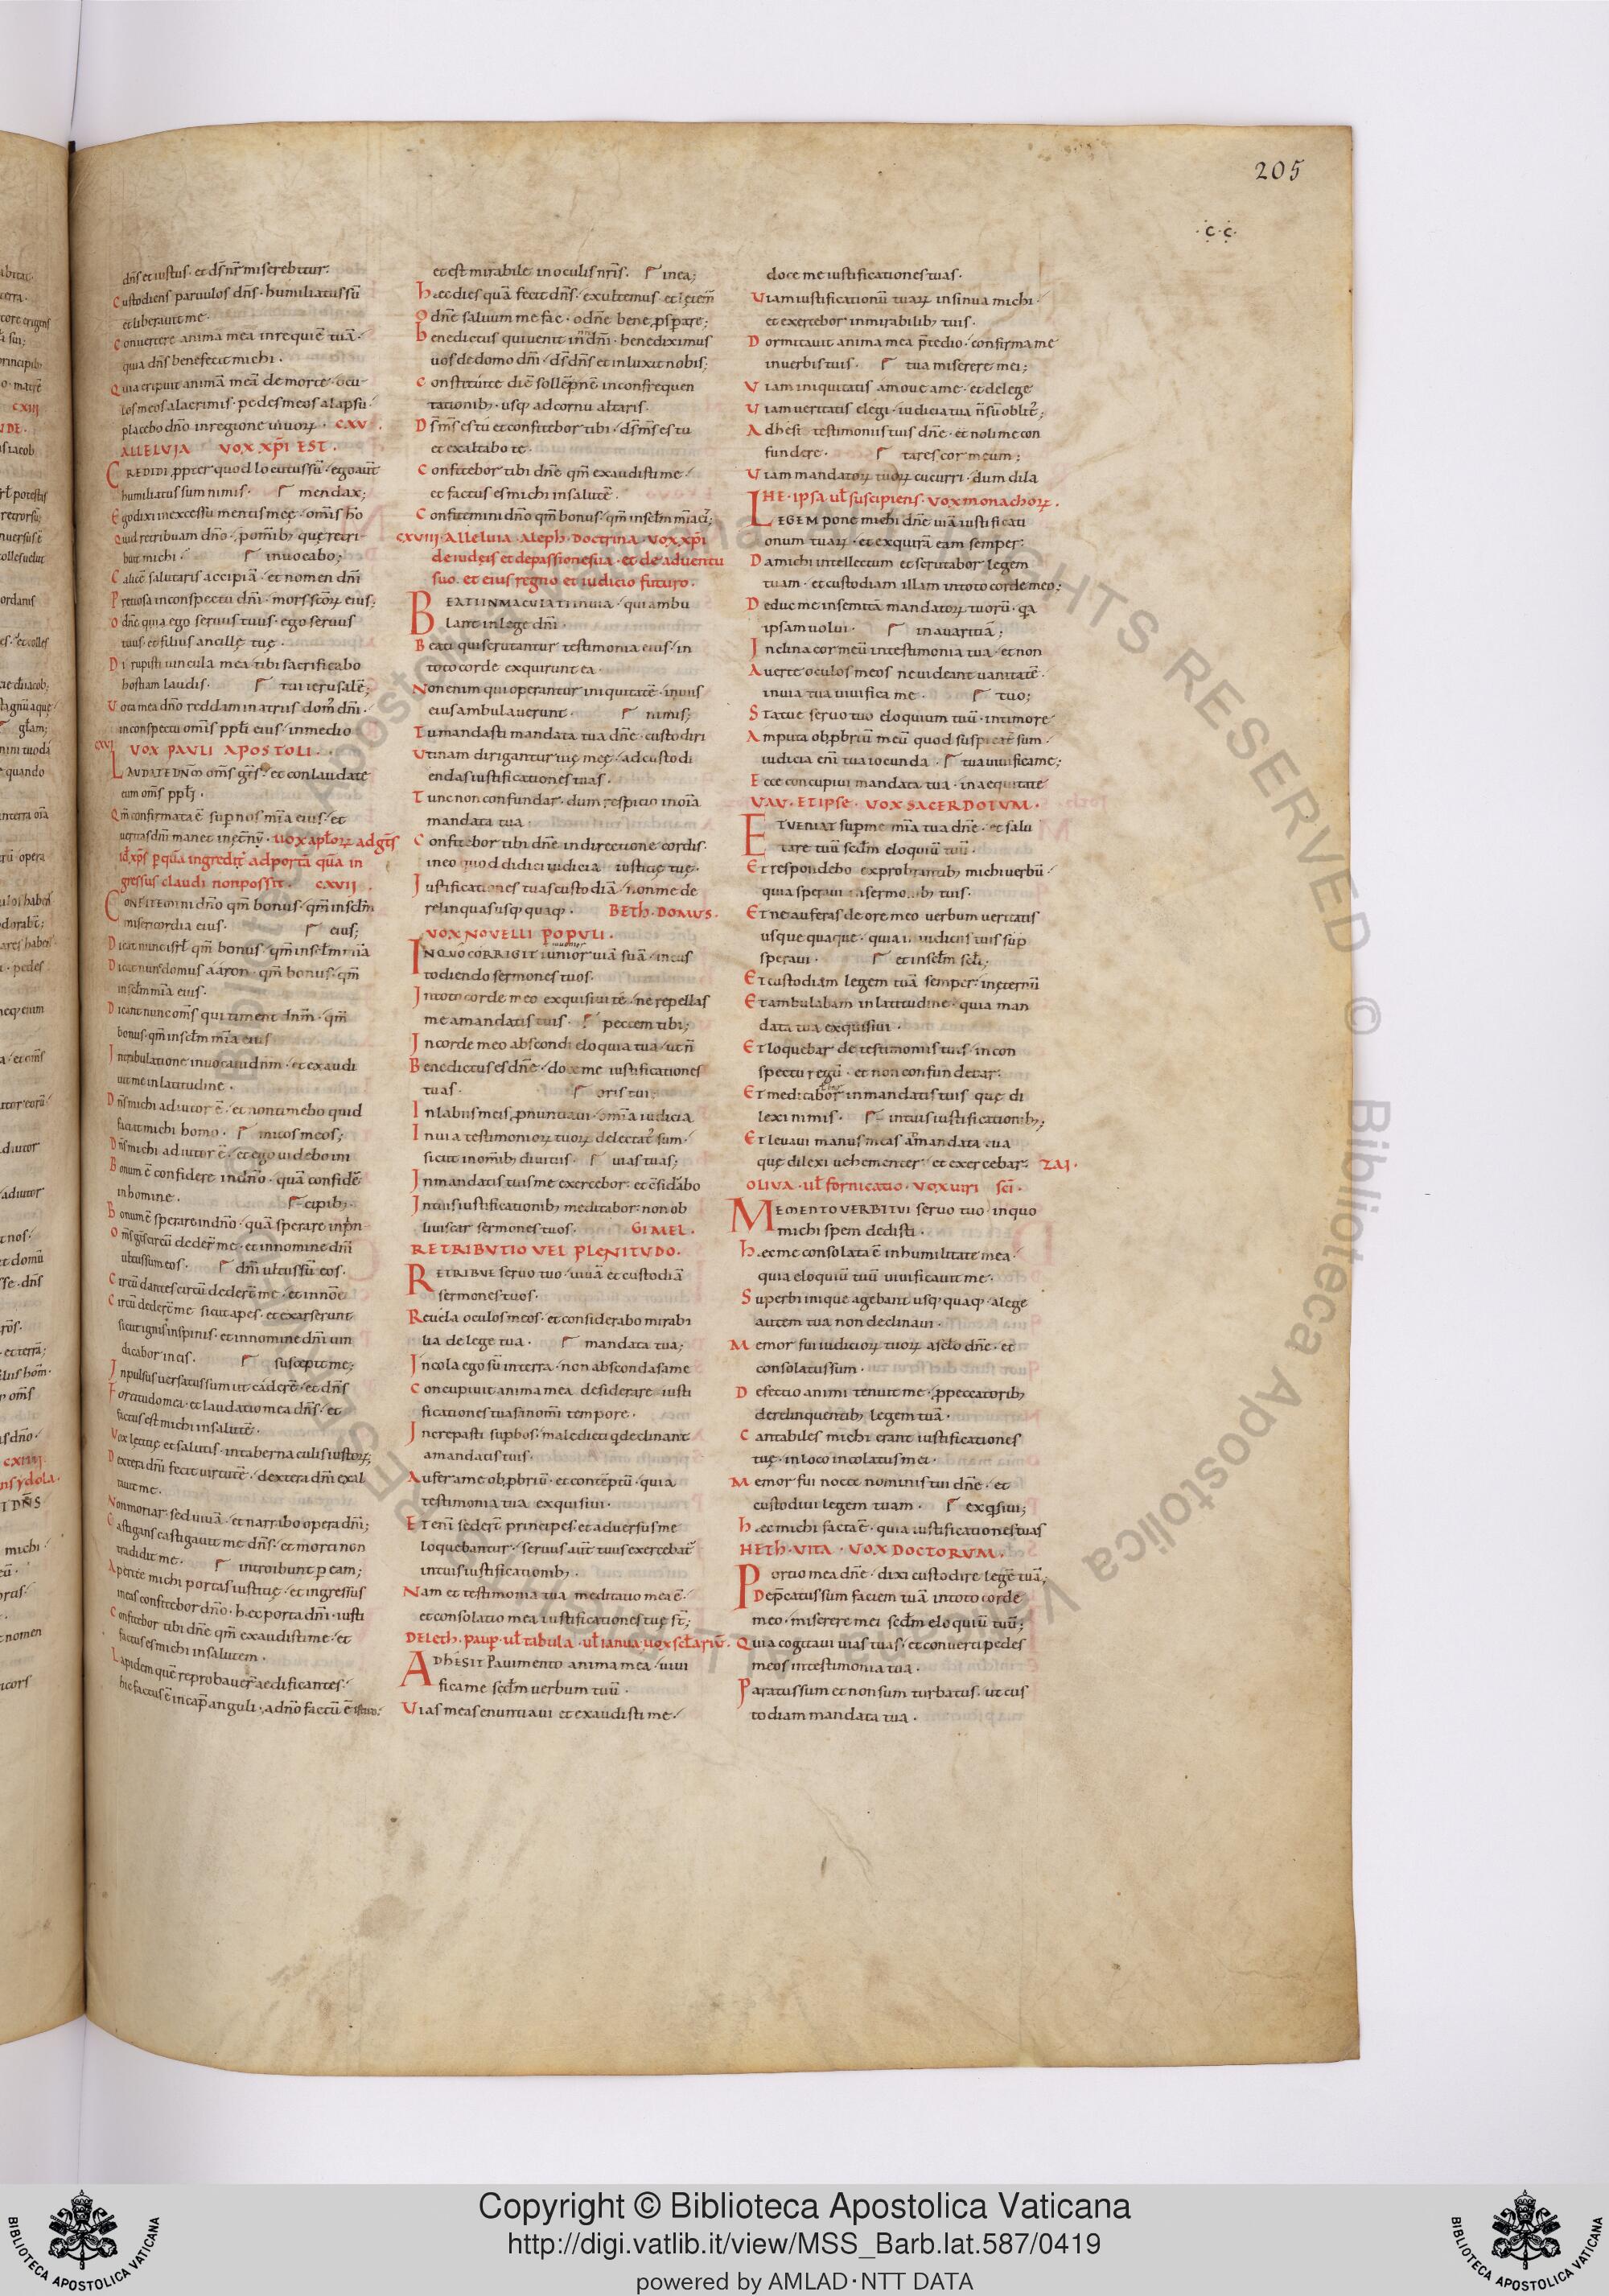 205
·c·c·
dn̄s et iustus· et ds̄ nr̄ miserebitur·
Custodiens paruulos dn̄s· humiliatus sū
et liberauit me·
Conuertere anima mea in requiē tuā·
quia dn̄s benefecit michi·
Quia eripuit animā meā de morte· ocu
los meos a lacrimis· pedes meos a lapsu·
placebo dn̄o in regione uiuoꝝ· CXV·
ALLELUIA VOX XP̄I EST·
CREDIDI ꝓpter quod locutus sū· ego aut̄
humiliatus sum nimis· mendax;
Ego dixi in excessu mentis meę· om̄is ho
Quid retribuam dn̄o· ꝓ om̄ib; quę retri
buit michi· inuocabo;
Calicē salutaris accipiā· et nomen dn̄i
Pretiosa in conspectu dn̄i· mors sc̄oꝝ eius;
O dn̄e quia ego seruus tuus· ego seruus
tuus· et filius ancillę tuę·
Dirupisti uincula mea tibi sacrificabo
hostiam laudis· tui ierusalē;
Vota mea dn̄o reddam in atriis dom' dn̄i·
in conspectu om̄is ppl̄i eius· in medio
CXVI VOX PAULI APOSTOLI·
LAUDATE DN̄M om̄s gn̄s· et conlaudate
eum om̄s ppl̄i·
Qm̄ confirmata ē sup nos mīa eius· et
ueritas dn̄i manet in ęt̄nū· uox apl̄oꝝ ad gn̄s
id xp̄s p quā ingredit̄ ad portā quā in
gressus claudi non possit· CXVII·
CONFITEMINI dn̄o qm̄ bonus· qm̄ in scl̄m
misericordia eius· eius;
Dicat nunc isrl̄ qm̄ bonus· qm̄ in scl̄m mīa
Dicat nunc domus aaron· qm̄ bonus· qm̄
in scl̄m mīa eius·
Dicant nunc om̄s qui timent dn̄m· qm̄
bonus· qm̄ in scl̄m mīa eius
In tribulatione inuocaui dn̄m· et exaudi
uit me in latitudine·
Dn̄s michi adiutor ē· et non timebo quid
faciat michi homo· inimicos meos;
Dn̄s michi adiutor ē· et ego uidebo ini
Bonum ē confidere in dn̄o· quā confidē
in homine· cipib;
Bonum ē sperare in dn̄o· quā sperare in prin
Om̄s gn̄s circū dedeꝛ̄ me· et in nomine dn̄i
ultus sum eos· dn̄i ultus sū eos·
Circū dantes circū dedert̄ me· et in noīe
Circū dedert̄ me sicut apes· et exarserunt
sicut ignis in spinis· et in nomine dn̄i uin
dicabor in eis· suscepit me;
Inpulsus uersatus sum ut caderē· et dn̄s
Fortitudo mea· et laudatio mea dn̄s· et
factus est michi in salutē·
Vox letitię et salutis· in tabernaculis iustoꝝ;
Dextera dn̄i fecit uirtutē· dextera dn̄i exal
tauit me·
Non moriar· sed uiuā· et narrabo opera dn̄i;
Castigans castigauit me dn̄s· et morti non
tradidit me· introibunt p eam;
Aperite michi portas iustitię· et ingressus
in eas confitebor dn̄o· hęc porta dn̄i· iusti
Confitebor tibi dn̄e qm̄ exaudisti me· et
factus es michi in salutem·
Lapidem quē reprobauer̄ aedificantes·
hic factus ē in cap̄ anguli· a dn̄o factū ē istud·
et est mirabile in oculis nr̄is· in ea;
Hęc dies quā fecit dn̄s· exultemus et lętem̄
O dn̄e saluum me fac· o dn̄e bene ꝓsperare;
Benedictus qui uenit in n̄ dn̄i· benediximus
uos de domo dn̄i· ds̄ dn̄s et inluxit nobis;
Constituite diē sollēpnē in confrequen
tationib; usq; ad cornu altaris·
Ds̄ ms̄ es tu et confitebor tibi· ds̄ ms̄ es tu
et exaltabo te·
Confitebor tibi dn̄e qm̄ exaudisti me·
et factus es michi in salutē·
Confitemini dn̄o qm̄ bonus· qm̄ in scl̄m mīa ei';
CXVIII· Alleluia· Aleph· Doctrina· vox xp̄i
de iudęis et de passione sua· et de aduentu
suo· et eius regno et iudicio futuro·
BEATI INMACULATI IN UIA· qui ambu
lant in lege dn̄i·
Beati qui scrutantur testimonia eius· in
toto corde exquirunt ea·
Non enim qui operantur iniquitatē· in uiis
eius ambulauerunt· nimis;
Tu mandasti mandata tua dn̄e· custodiri
Utinam dirigantur uię meę· ad custodi
endas iustificationes tuas·
Tunc non confundar· dum respicio in oīa
mandata tua·
Confitebor tibi dn̄e in directione cordis·
in eo quod didici iudicia iustitię tuę·
Iustificationes tuas custodiā· non me de
relinquas usq; quaq;· BETH· DOMUS·
VOX NOVELLI POPULI·
IN QUO CORRIGIT iunior uiā suā· in cus
todiendo sermones tuos·
In toto corde meo exquisiui te· ne repellas
me a mandatis tuis· peccem tibi;
In corde meo abscondi eloquia tua· ut n̄
Benedictus es dn̄e· doce me iustificationes
tuas· oris tui;
In labiis meis ꝓnuntiaui· omīa iudicia
In uia testimonioꝝ tuoꝝ delectat' sum·
sicut in om̄ib; diuitiis· uias tuas;
In mandatis tuis me exercebor· et c̄siderabo
In tuis iustificationib; meditabor· non ob
liuiscar sermones tuos· GIMEL·
RETRIBUTIO VEL PLENITUDO·
RETRIBUE seruo tuo· uiuā et custodiā
sermones tuos·
Reuela oculos meos· et considerabo mirabi
lia de lege tua· mandata tua;
Incola ego sū in terra· non abscondas a me
Concupiuit anima mea desiderare iusti
ficationes tuas in om̄i tempore·
Increpasti supbos· maledicti q declinant
a mandatis tuis·
Aufer a me obꝓbriū· et contēptū· quia
testimonia tua exquisiui·
Et eni sedert̄ principes· et aduersus me
loquebantur· seruus aut̄ tuus exercebat̄
in tuis iustificationib;·
Nam et testimonia tua meditatio mea ē·
et consolatio mea iustificationes tuę st̄;
DELETH· paup̄ ul̄ tabula· ul̄ ianua uox scl̄ariū·
ADHESIT Pauimento anima mea· uiui
fica me scd̄m uerbum tuū·
Vias meas enuntiaui et exaudisti me·
doce me iustificationes tuas·
Viam iustificationū tuaꝝ insinua michi·
et exercebor in mirabilib; tuis·
Dormitauit anima mea p̄ tedio· confirma me
in uerbis tuis· tua miserere mei;
Viam iniquitatis amoue a me· et de lege
Viam ueritatis elegi· iudicia tua n̄ sū oblit';
Adhesi testimoniis tuis dn̄e· et noli me con
fundere· tares cor meum;
Viam mandatoꝝ tuoꝝ cucurri· dum dila
HE· ipsa ul̄ suscipiens· vox monachoꝝ·
LEGEM pone michi dn̄e uiā iustificati
onum tuaꝝ· et exquirā eam semper·
Da michi intellectum et scrutabor legem
tuam· et custodiam illam in toto corde meo;
Deduc me in semitā mandatoꝝ tuorū· qa
ipsam uolui· in auaritiā;
Inclina cor meū in testimonia tua· et non
Auerte oculos meos ne uideant uanitatē·
in uia tua uiuifica me· tuo;
Statue seruo tuo eloquium tuū· in timore
Amputa obꝓbriū meū quod suspicat' sum·
iudicia eni tua iocunda· tua uiuifica me;
Ecce concupiui mandata tua· in aequitate
VAV· ET IPSE· VOX SACERDOTUM·
ET VENIAT sup me mīa tua dn̄e· et salu
tare tuū scd̄m eloquiū tuū·
Et respondebo exprobrantib; michi uerbū·
quia speraui in sermonib; tuis·
Et ne auferas de ore meo uerbum ueritatis
usque quaque· quia in iudiciis tuis sup
speraui· et in scl̄m scl̄i;
Et custodiam legem tuā semper· in ęternū
Et ambulabam in latitudine· quia man
data tua exquisiui·
Et loquebar de testimoniis tuis· in con
spectu regū· et non confundebar·
Et meditabor in mandatis tuis quę di
lexi nimis· in tuis iustificationib;;
Et leuaui manus meas ad mandata tua
quę dilexi uehementer· et exercebar· ZAI·
OLIVA· ul̄ fornicatio· vox uiri sc̄i·
MEMENTO VERBI TUI seruo tuo· in quo
michi spem dedisti·
Hęc me consolata ē in humilitate mea·
quia eloquiū tuū uiuificauit me·
Superbi inique agebant usq; quaq;· a lege
autem tua non declinaui·
Memor fui iudicioꝝ tuoꝝ a scl̄o dn̄e· et
consolatus sum·
Defectio animi tenuit me· ꝓ peccatorib;
derelinquentib; legem tuā·
Cantabiles michi erant iustificationes
tuę· in loco incolatus mei·
Memor fui nocte nominis tui dn̄e· et
custodiui legem tuam· exqsiui;
Hęc michi facta ē· quia iustificationes tuas
HETH· VITA· VOX DOCTORUM·
Portio mea dn̄e· dixi custodire legē tuā;
Dep̄catus sum faciem tuā in toto corde
meo· miserere mei scd̄m eloquiū tuū;
Quia cogitaui uias tuas· et conuerti pedes
meos in testimonia tua·
Paratus sum et non sum turbatus· ut cus
todiam mandata tua·
Copyright © Biblioteca Apostolica Vaticana
http://digi.vatlib.it/view/MSS_Barb.lat.587/0419
powered by AMLAD·NTT DATA